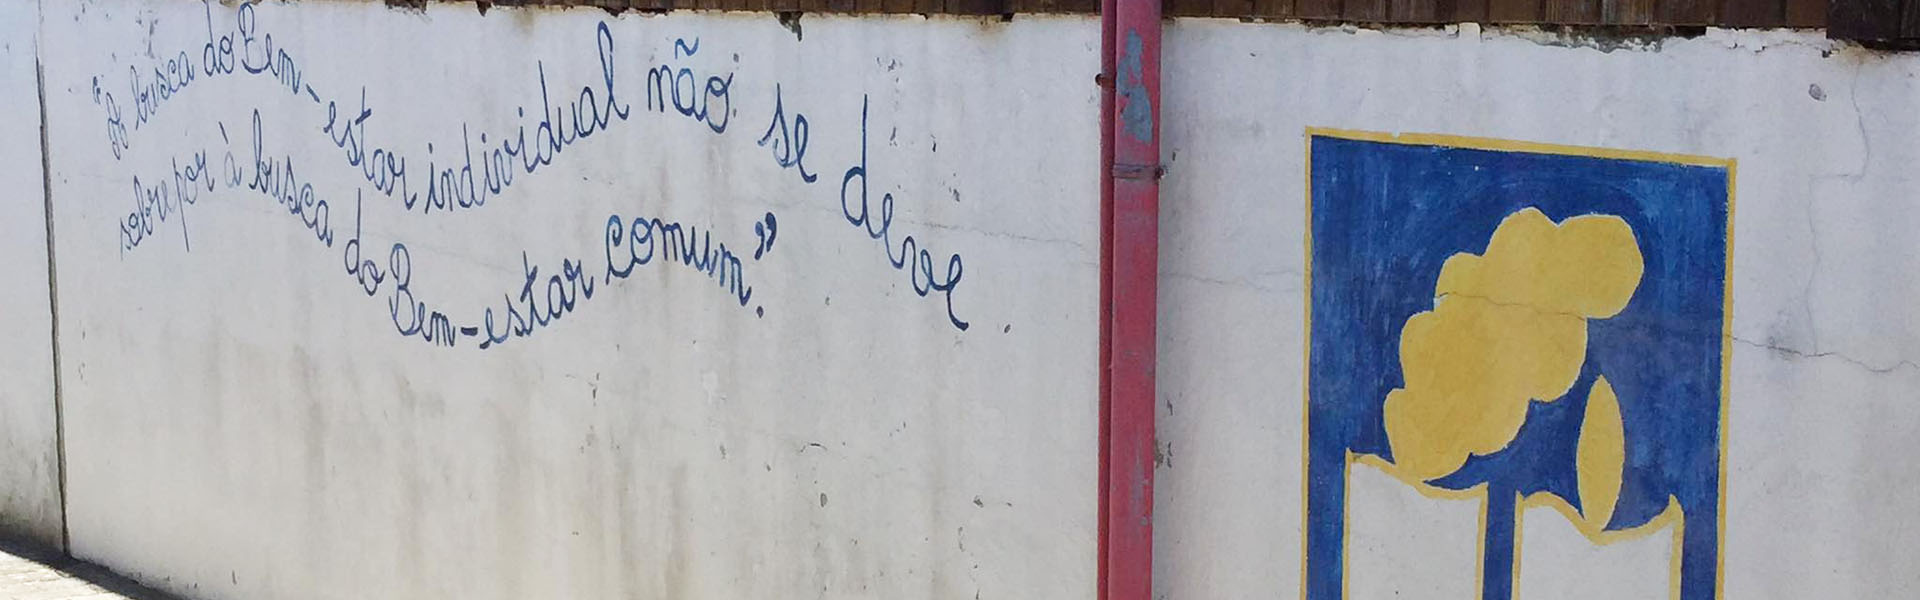 "A busca do Bem-estar individual não se deve
sobrepor à busca do Bem-estar comum".